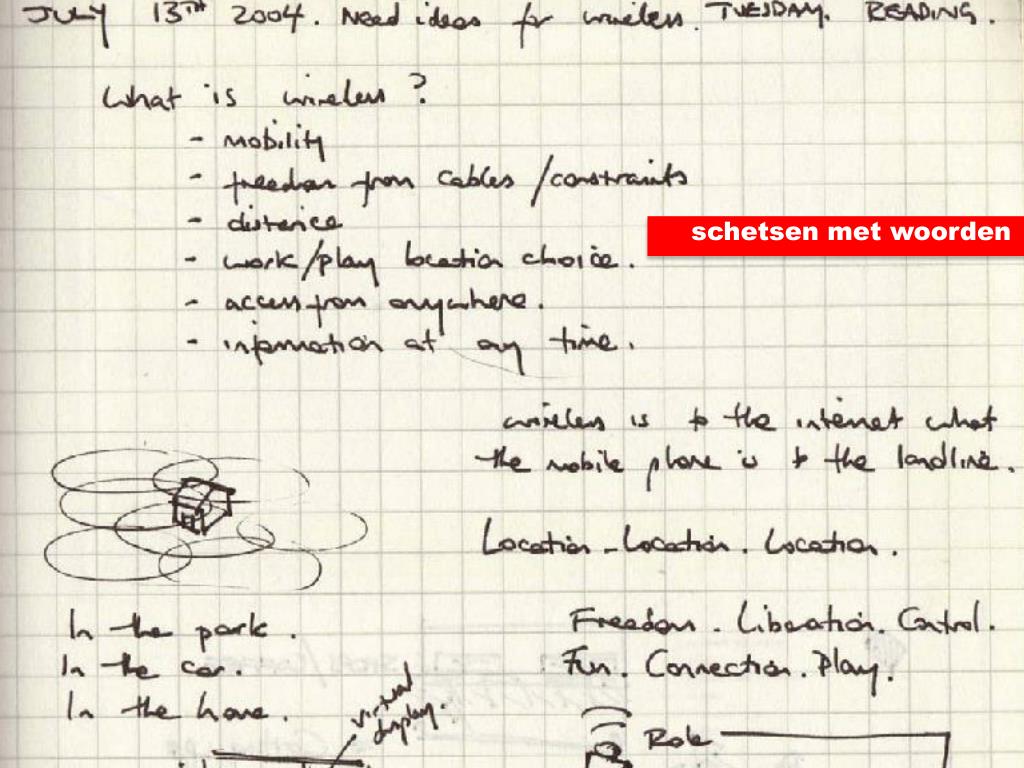 JULY 13TH 2004. Need ideas for wireless. TUESDAY. READING.
What is wireless?
- mobility
- freedom from cables/constraints
- distance
schetsen met woorden
- work/play location choice.
- access from anywhere.
- information at any time.
wireless is to the internet what
the mobile phone is to the landline.
Location - Location. Location.
In the park.
In the car.
In the home.
Freedom. Liberation. Control.
Fun. Connection. Play.
virtual
display.
Role